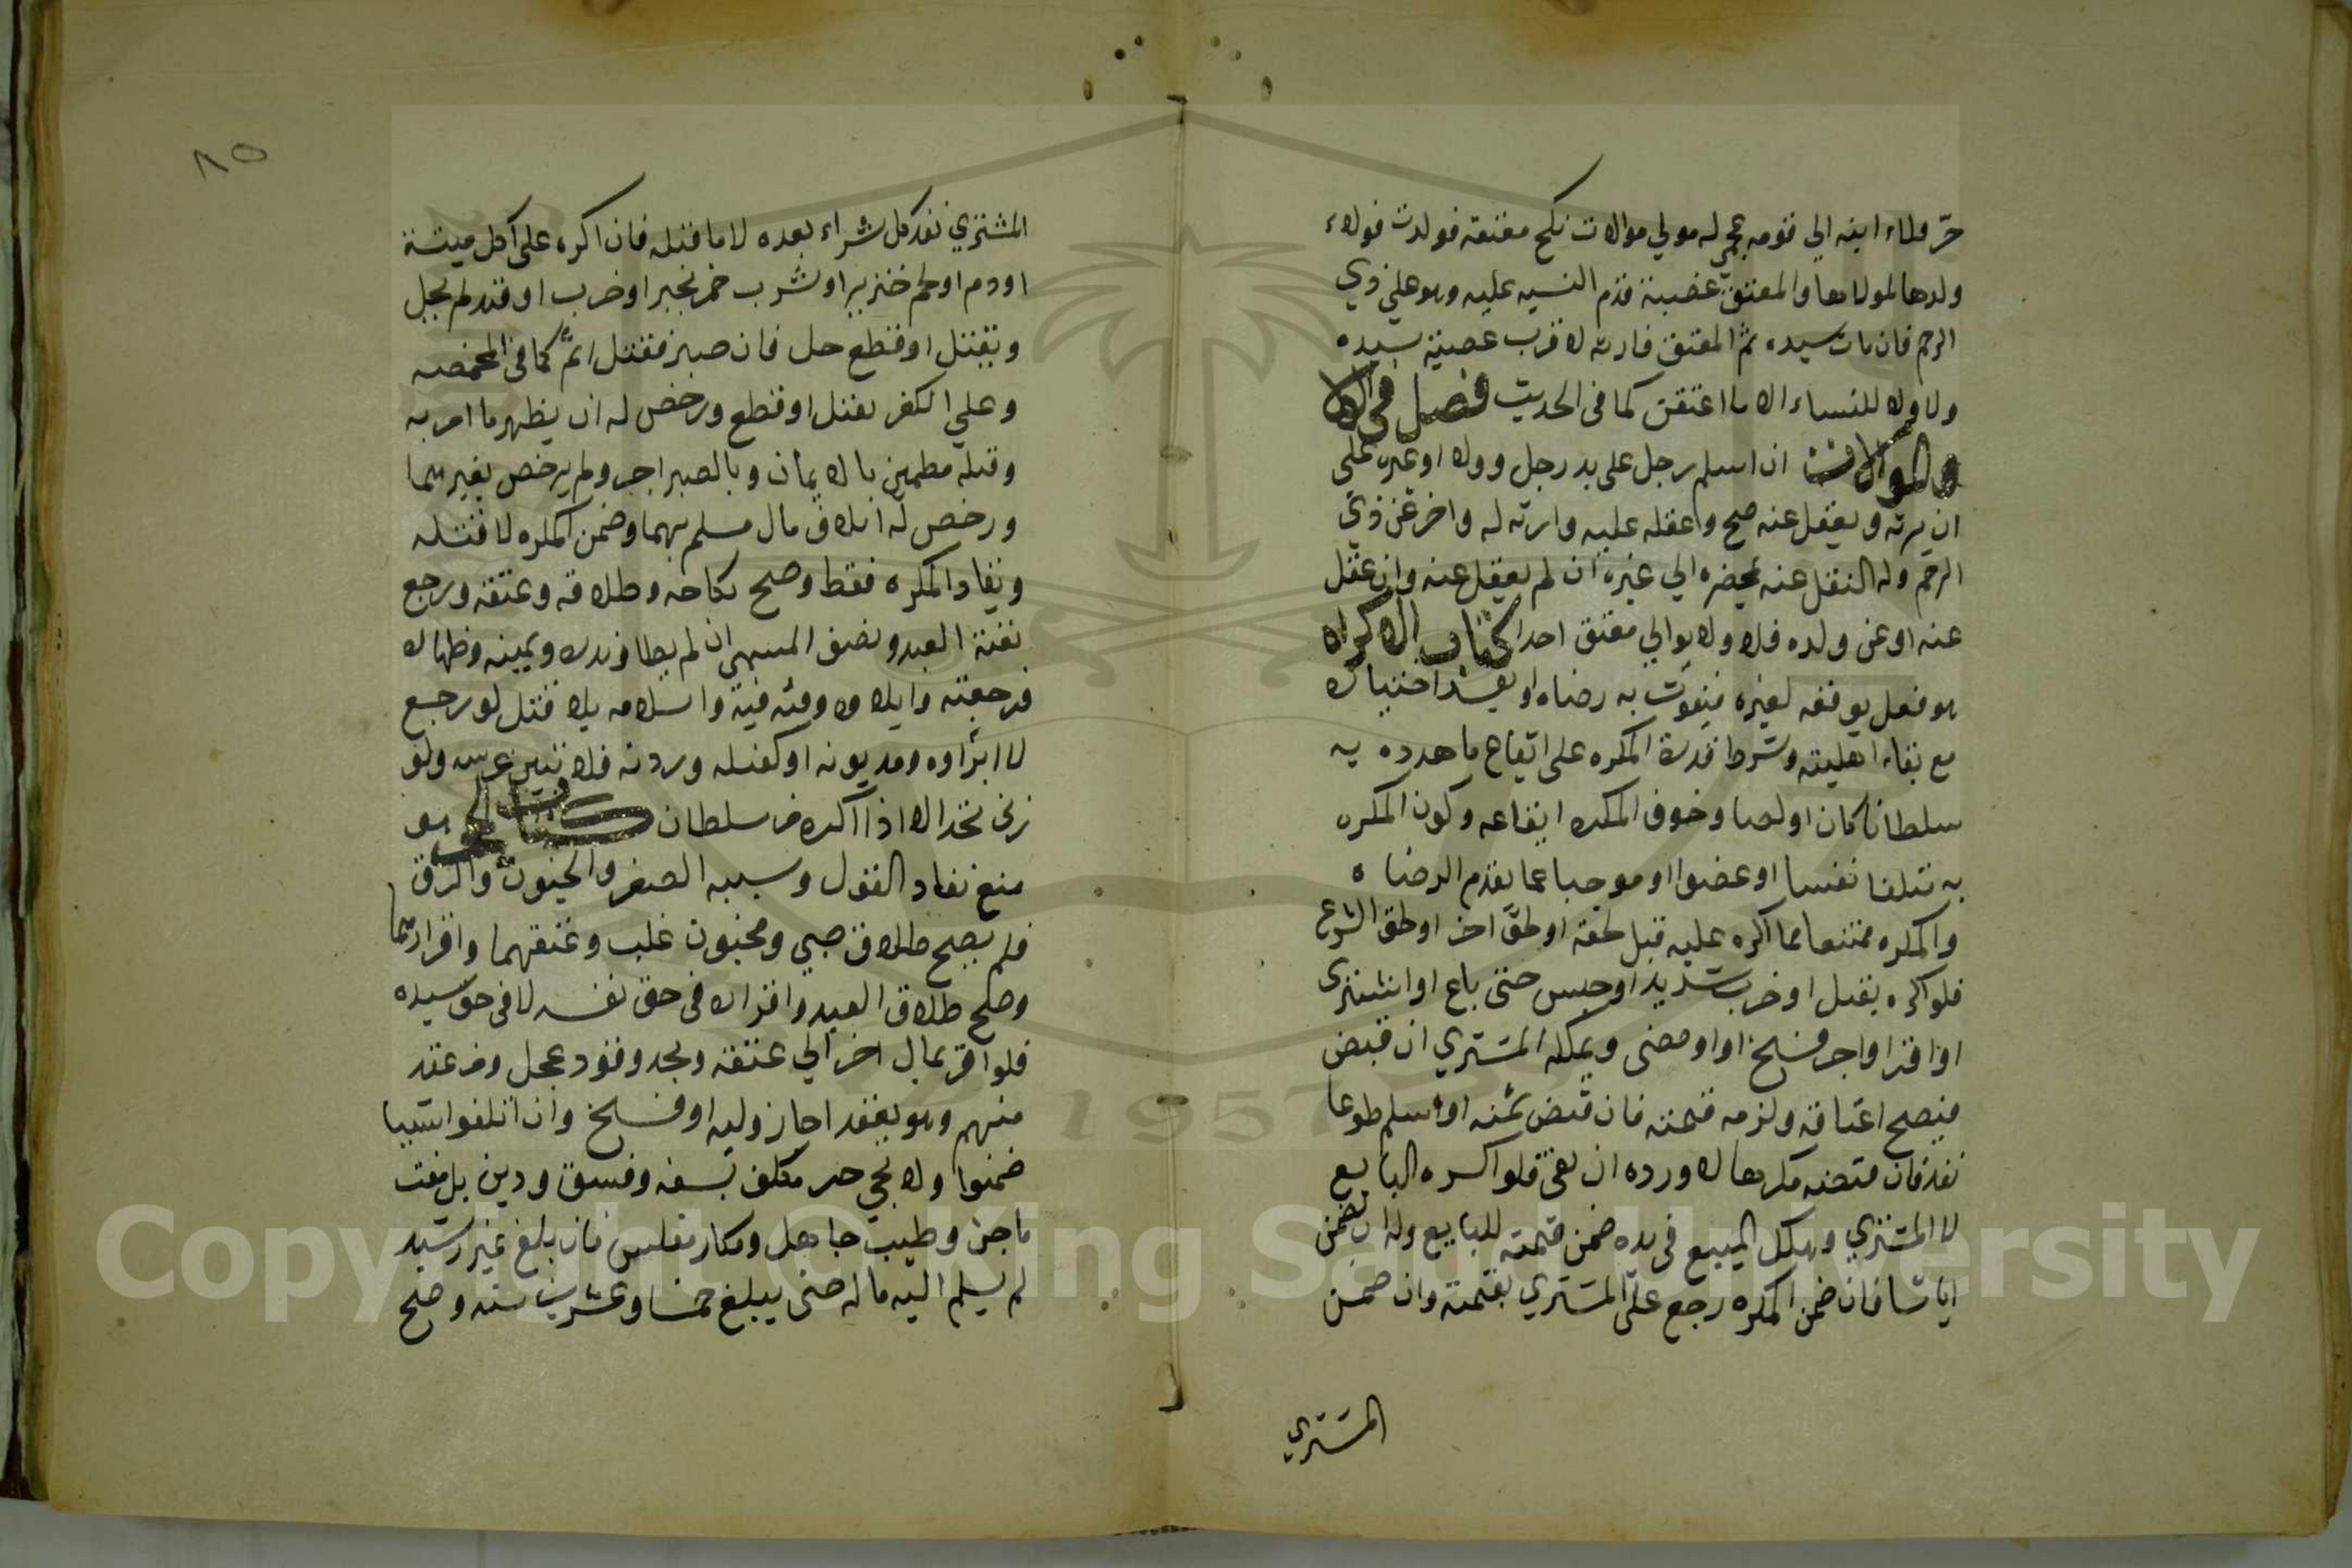 حرّ ولاء ابنه الي قومه عجمي له مولي موالات نكح معتقه فولدت فولاء
ولدها لمولاها والمعتق عصبة قدم النسبه عليه وهو علي ذي
الرحم فان مات سيده ثم المعتق فارثه لاقرب عصبة سيده
ولا ولاء للنساء الا ما اعتقن كما في الحديث فصل في
الموالات ان اسلم رجل علي يد رجل ووالا او غيره علي
ان يرثه ويعقل عنه صح وعقله عليه وارثه له واخر عن ذي
الرحم وله النقل عنه بمحضره الي غيره ان لم يعقل عنه وان عقل
عنه او عن ولده فلا ولا يوالي معتق احدا كتاب الاكراه
هو فعل يوقعه لغيره فيفوت به رضاه او يفسد اختياره
مع بقاء اهليته وشرط قدرة المكره علي ايقاع ما هدده به
سلطانا كان او لصا وخوف المكره ايقاعه وكون المكره
به متلفا نفسا او عضوا او موجبا عما يعدم الرضاه
والمكره ممتنعا عما اكره عليه قبل لحقه او لحق اخر او لحق الشرع
فلو اكره بقتل او ضرب شديد او حبس حتي باع او اشتري
او اقر او اجر فسخ او امضي ويملكه المشتري ان قبض
فيصح اعتاقه ولزمه قيمته فان قبض ثمنه او سلم طوعا
نفذ فان قبضه مكرها لا ورده ان بقي فلو اكره البايع
لا المشتري وهلك المبيع في يده ضمن قيمته للبايع وله ان يضمن
ايا شا فان ضمن المكره رجع علي المشتري بقيمته وان ضمن
المشتري
٨٥
المشتري نفذ كل شراء بعده لا ما قبله فان اكره علي اكل ميتة
او دم او لحم خنزير او شرب خمر بحبس او ضرب او قيد لم يحل
وبقتل او قطع حل فان صبر فقتل اثم كما في المخمصه
وعلي الكفر بقتل او قطع ورخص له ان يظهر ما امر به
وقلبه مطمين بالايمان وبالصبر اجر ولم يرخص بغيرهما
ورخص له اتلاف مال مسلم بهما وضمن المكره لا قتله
ويقاد المكره فقط وصح نكاحه وطلاقه وعتقه ورجع
بقيمة العبد ونصف المسمي ان لم يطا ونذره ويمينه وظهاره
ورجعته وايلاوه وفيئه فيه واسلامه بلا قتل لو رجع
لا ابراوه مديونه او كفيله وردته فلا تبين عرسه ولو
زني يحد الا اذا اكره من سلطان كتاب الحجر هو
منع نفاد القول وسببه الصغر والجنون والرق
فلم يصح طلاق صبي ومجنون غلب وعتقهما واقرارهما
وصح طلاق العبد واقراره في حق نفسه لا في حق سيده
فلو اقر بمال اخر الي عتقه وبحد وقود عجل ومن عقد
منهم وهو يعقد اجاز وليه او فسخ وان اتلفوا شيا
ضمنوا ولا يحجر حر مكلف بسفه وفسق ودين بل مفت
ماجن وطبيب جاهل ومكار مفلس فان بلغ غير رشيد
لم يسلم اليه ماله حتي يبلغ خمسا وعشرين سنه وصح
Copyright © King Saud University
1957